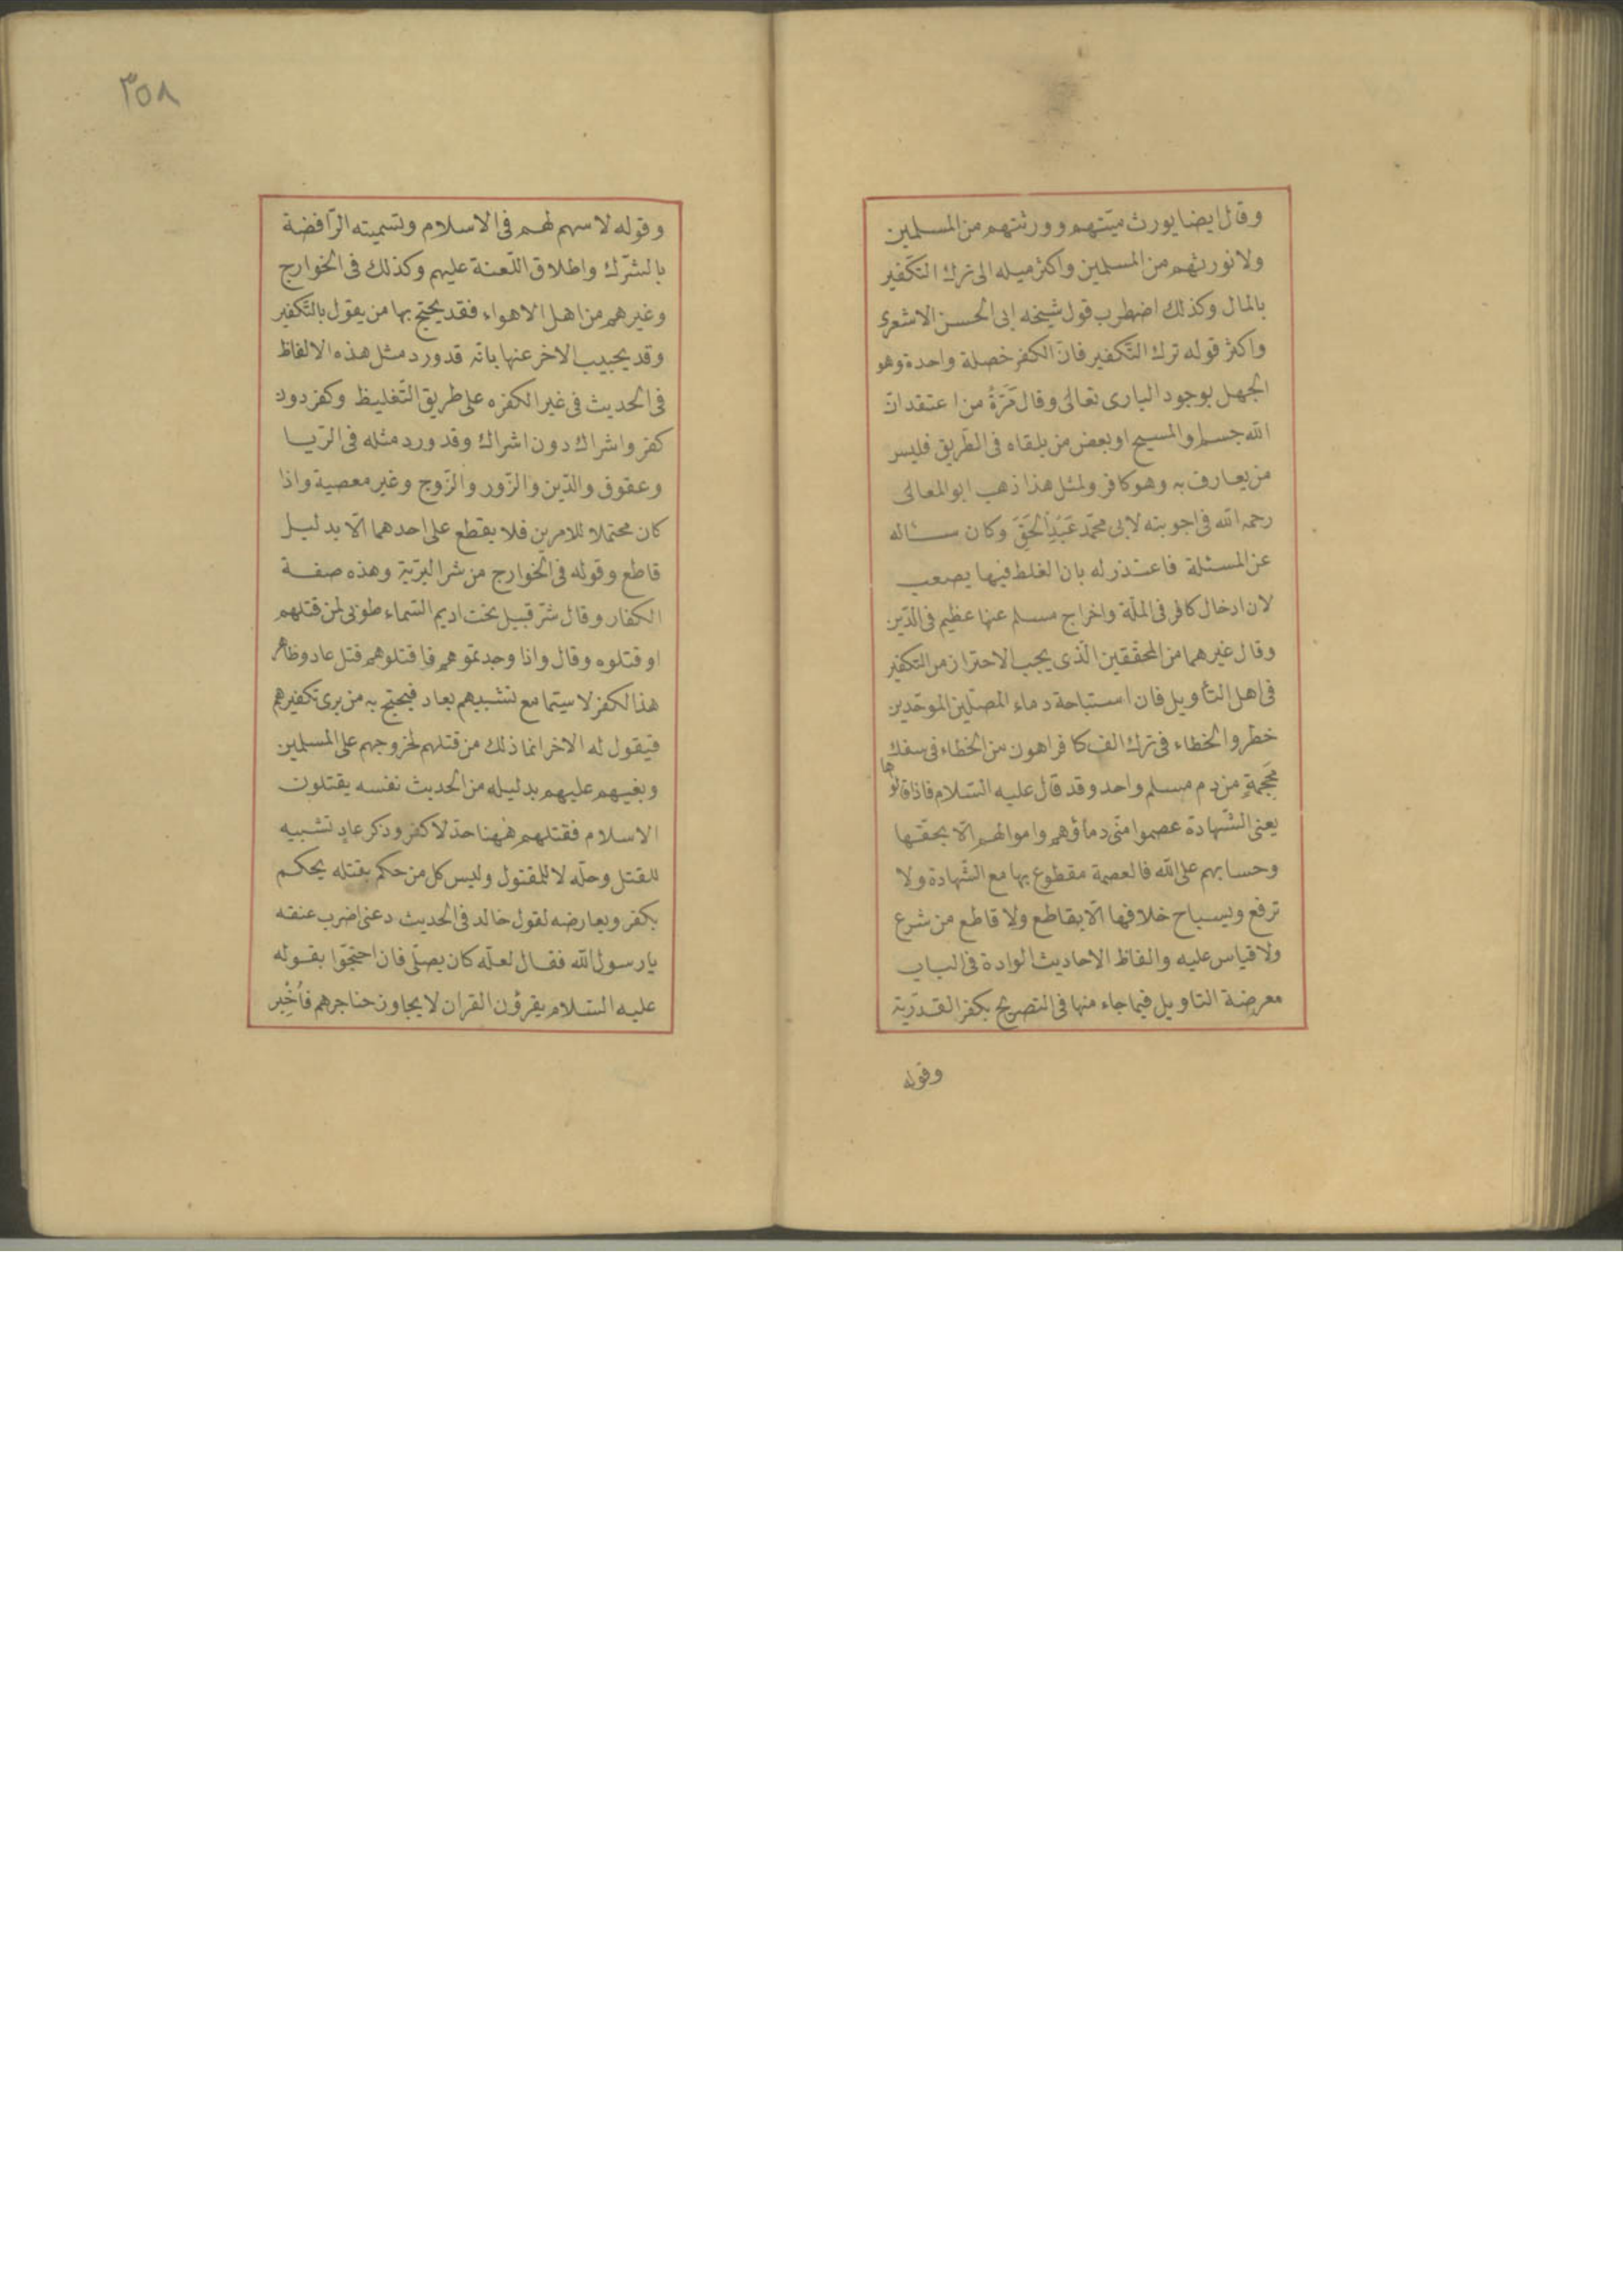 وقال ايضا يورث ميّتهم وورثتهم من المسلمين
ولا نورثهم من المسلمين واكثر ميله الى ترك التكفير
بالمال وكذلك اضطرب قول شيخه ابى الحسن الاشعرى
واكثر قوله ترك التّكفير فانّ الكفر خصلة واحدة وهو
الجهل بوجود البارى تعالى وقال مَرَّةً من اعتقد انّ
الله جسم او المسيح او بعض من يلقاه فى الطّريق فليس
من يعارف به وهو كافر ولمثل هذا ذهب ابو المعالى
رحمه الله فى اجوبته لابى محمّد عَبْدِ الحَقّ وكان ساله
عن المسئلة فاعتذر له بان الغلط فيها يصعب
لان ادخال كافر فى الملّة واخراج مسلم عنها عظيم فى الدّين
وقال غيرهما من المحقّقين الّذى يجب الاحتراز من التكفير
فى اهل التأويل فان استباحة دماء المصلّين الموحّدين
خطر والخطاء فى ترك الف كافر اهون من الخطاء فى سفك
مَحجَمةٍ من دم مسلم واحد وقد قال عليه السّلام فاذا قالوها
يعنى الشّهادة عصموا منّى دماؤهم واموالهم الّا بحقّها
وحسابهم على الله فالعصمة مقطوع بها مع الشّهادة ولا
ترفع ويسباح خلافها الّا بقاطع ولا قاطع من شرع
ولا قياس عليه والفاظ الاحاديث الوادة فى الباب
معرضة التاويل فيما جاء منها فى التصريح بكفر القدّريّة
وقوله
٣٥٨
وقوله لا سهم لهم فى الاسلام وتسميته الرّافضة
بالشّرك واطلاق اللّعنة عليهم وكذلك فى الخوارج
وغيرهم من اهل الاهواء فقد يحتجّ بها من يقول بالتّكفير
وقد يجيب الاخر عنها بانّه قد ورد مثل هذه الالفاظ
فى الحديث فى غير الكفره على طريق التّغليظ وكفر دون
كفر واشراك دون اشراك وقد ورد مثله فى الرّيا
وعقوق والدّين والزّور والزّوج وغير معصية واذا
كان محتملا للامرين فلا يقطع على احدهما الّا بدليل
قاطع وقوله فى الخوارج من شر البريّة وهذه صفة
الكفار وقال شرّ قبيل تحت اديم السّماء طوبى لمن قتلهم
او قتلوه وقال واذا وجدتموهم فاقتلوهم قتل عاد وظاهر
هذا لكفر لا سيّما مع تشبيهم بعاد فيحتج به من يرى تكفيرهم
فيقول له الاخر انما ذلك من قتلهم لخروجهم على المسلمين
وبغيهم عليهم بدليله من الحديث نفسه يقتلون
الاسلام فقتلهم ههنا حدّ لا كفر وذكر عادٍ تشبيه
للقتل وحلّه لا للمقتول وليس كل من حكم بقتله يحكم
بكفر ويعارضه لقول خالد فى الحديث دعنى اضرب عنقه
يا رسول الله فقال لعلّه كان يصلّى فان احتجّوا بقوله
عليه السّلام يقرؤن القران لا يجاوز حناجرهم فأُخْبِر